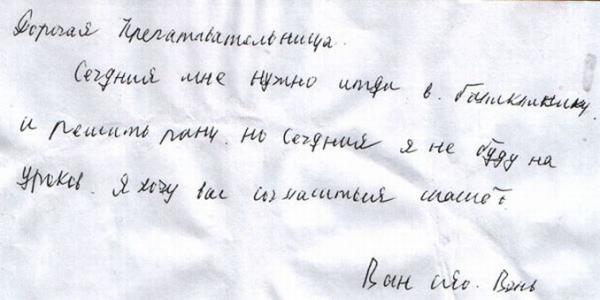 Дорогая Препатавательница.
Сегдния мне нужно итди в. баликлинику.
и решить рану. но Сегдния я не буду на
уроков. Я хочу вас согласиться
Ван сяо. Вань